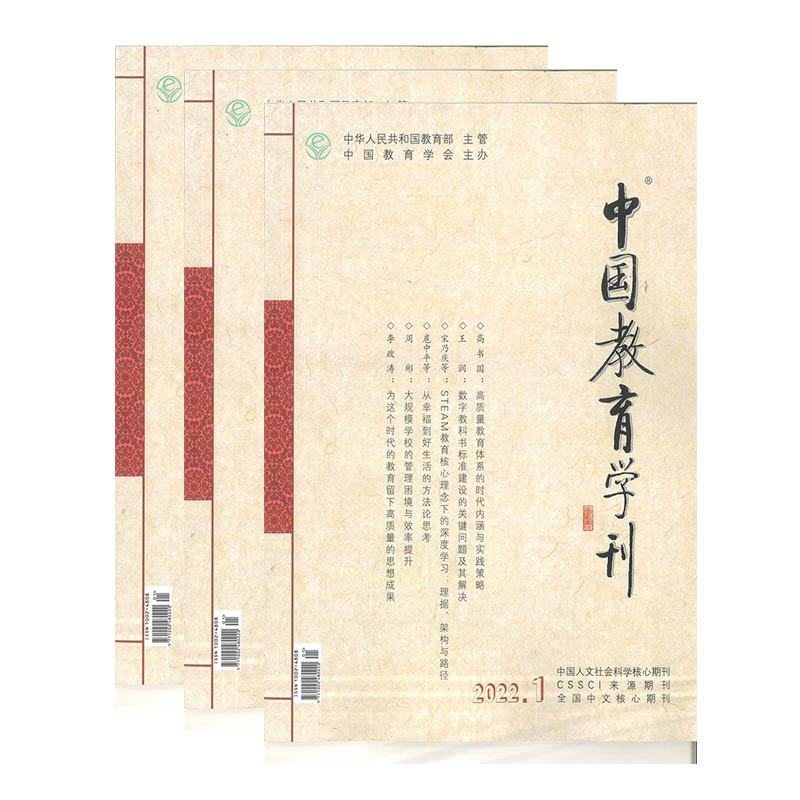 中华人民共和国教育部 主管
中国教育学会 主办
中国教育学刊
®
◇高书国：高质量教育体系的时代内涵与实践策略
◇王 润：数字教科书标准建设的关键问题及其解决
◇宋乃庆等：STEAM教育核心理念下的深度学习：理据、架构与路径
◇扈中平等：从幸福到好生活的方法论思考
◇周 彬：大规模学校的管理困境与效率提升
◇李政涛：为这个时代的教育留下高质量的思想成果
2022.1
中国人文社会科学核心期刊
CSSCI来源期刊
全国中文核心期刊
ISSN 1002-4808
ISSN 1002-4808
ISSN 1002-4808